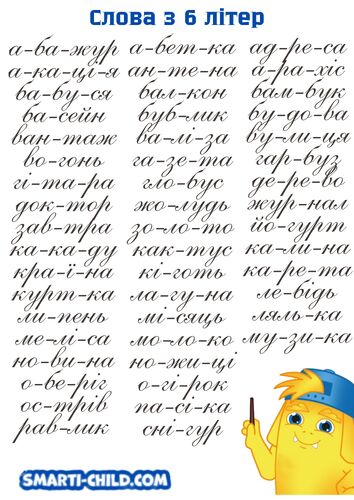 Слова з 6 літер
а-ба-жур а-бет-ка ад-ре-са
а-ка-ці-я ан-те-на а-ра-хіс
ба-бу-ся бал-кон бам-бук
ба-сейн буб-лик бу-до-ва
ван-таж ва-лі-за ву-ли-ця
во-гонь га-зе-та гар-буз
гі-та-ра гло-бус де-ре-во
док-тор жо-лудь жур-нал
зав-тра зо-ло-то йо-гурт
ка-ка-ду как-тус ка-ли-на
кра-ї-на кі-готь ка-ре-та
курт-ка ла-гу-на ле-бідь
ли-пень мі-сяць ляль-ка
ме-лі-са мо-ло-ко му-зи-ка
но-ви-на но-жи-ці
о-бе-ріг о-гі-рок
ос-трів па-сі-ка
рав-лик сні-гур
SMARTI-CHILD.COM